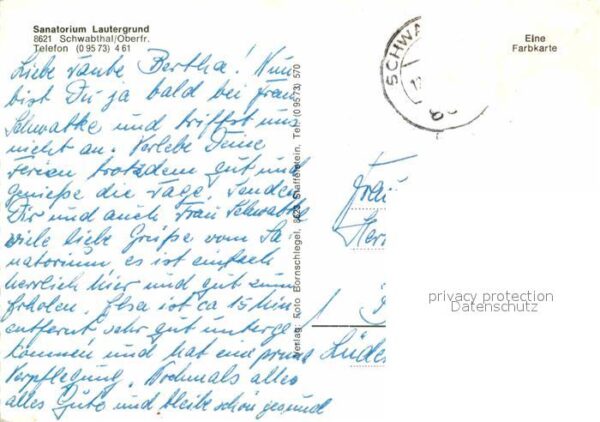 Sanatorium Lautergrund
8621 Schwabthal/Oberfr.
Telefon (0 95 73) 4 61
Eine
Farbkarte
SCHWA
Liebe Tante Bertha! Nun
bist Du ja bald bei Frau
Schwatke und triffst uns
nicht an. Verlebe Deine
Ferien trotzdem gut und
genieße die Tage. Senden
Dir und auch Frau Schwatke
viele liebe Grüße vom Sa-
natorium es ist einfach
herrlich hier und gut zum
Erholen. Elsa ist ca 15 Min
entfernt sehr gut unterge
kommen und hat eine prima
Verpflegung. Nochmals alles
alles Gute und bleibe schön gesund
Verlag: Foto Bornschlegel, 8623 Staffelstein, Tel. (0 95 73) 570
Frau
Lüde
privacy protection
Datenschutz